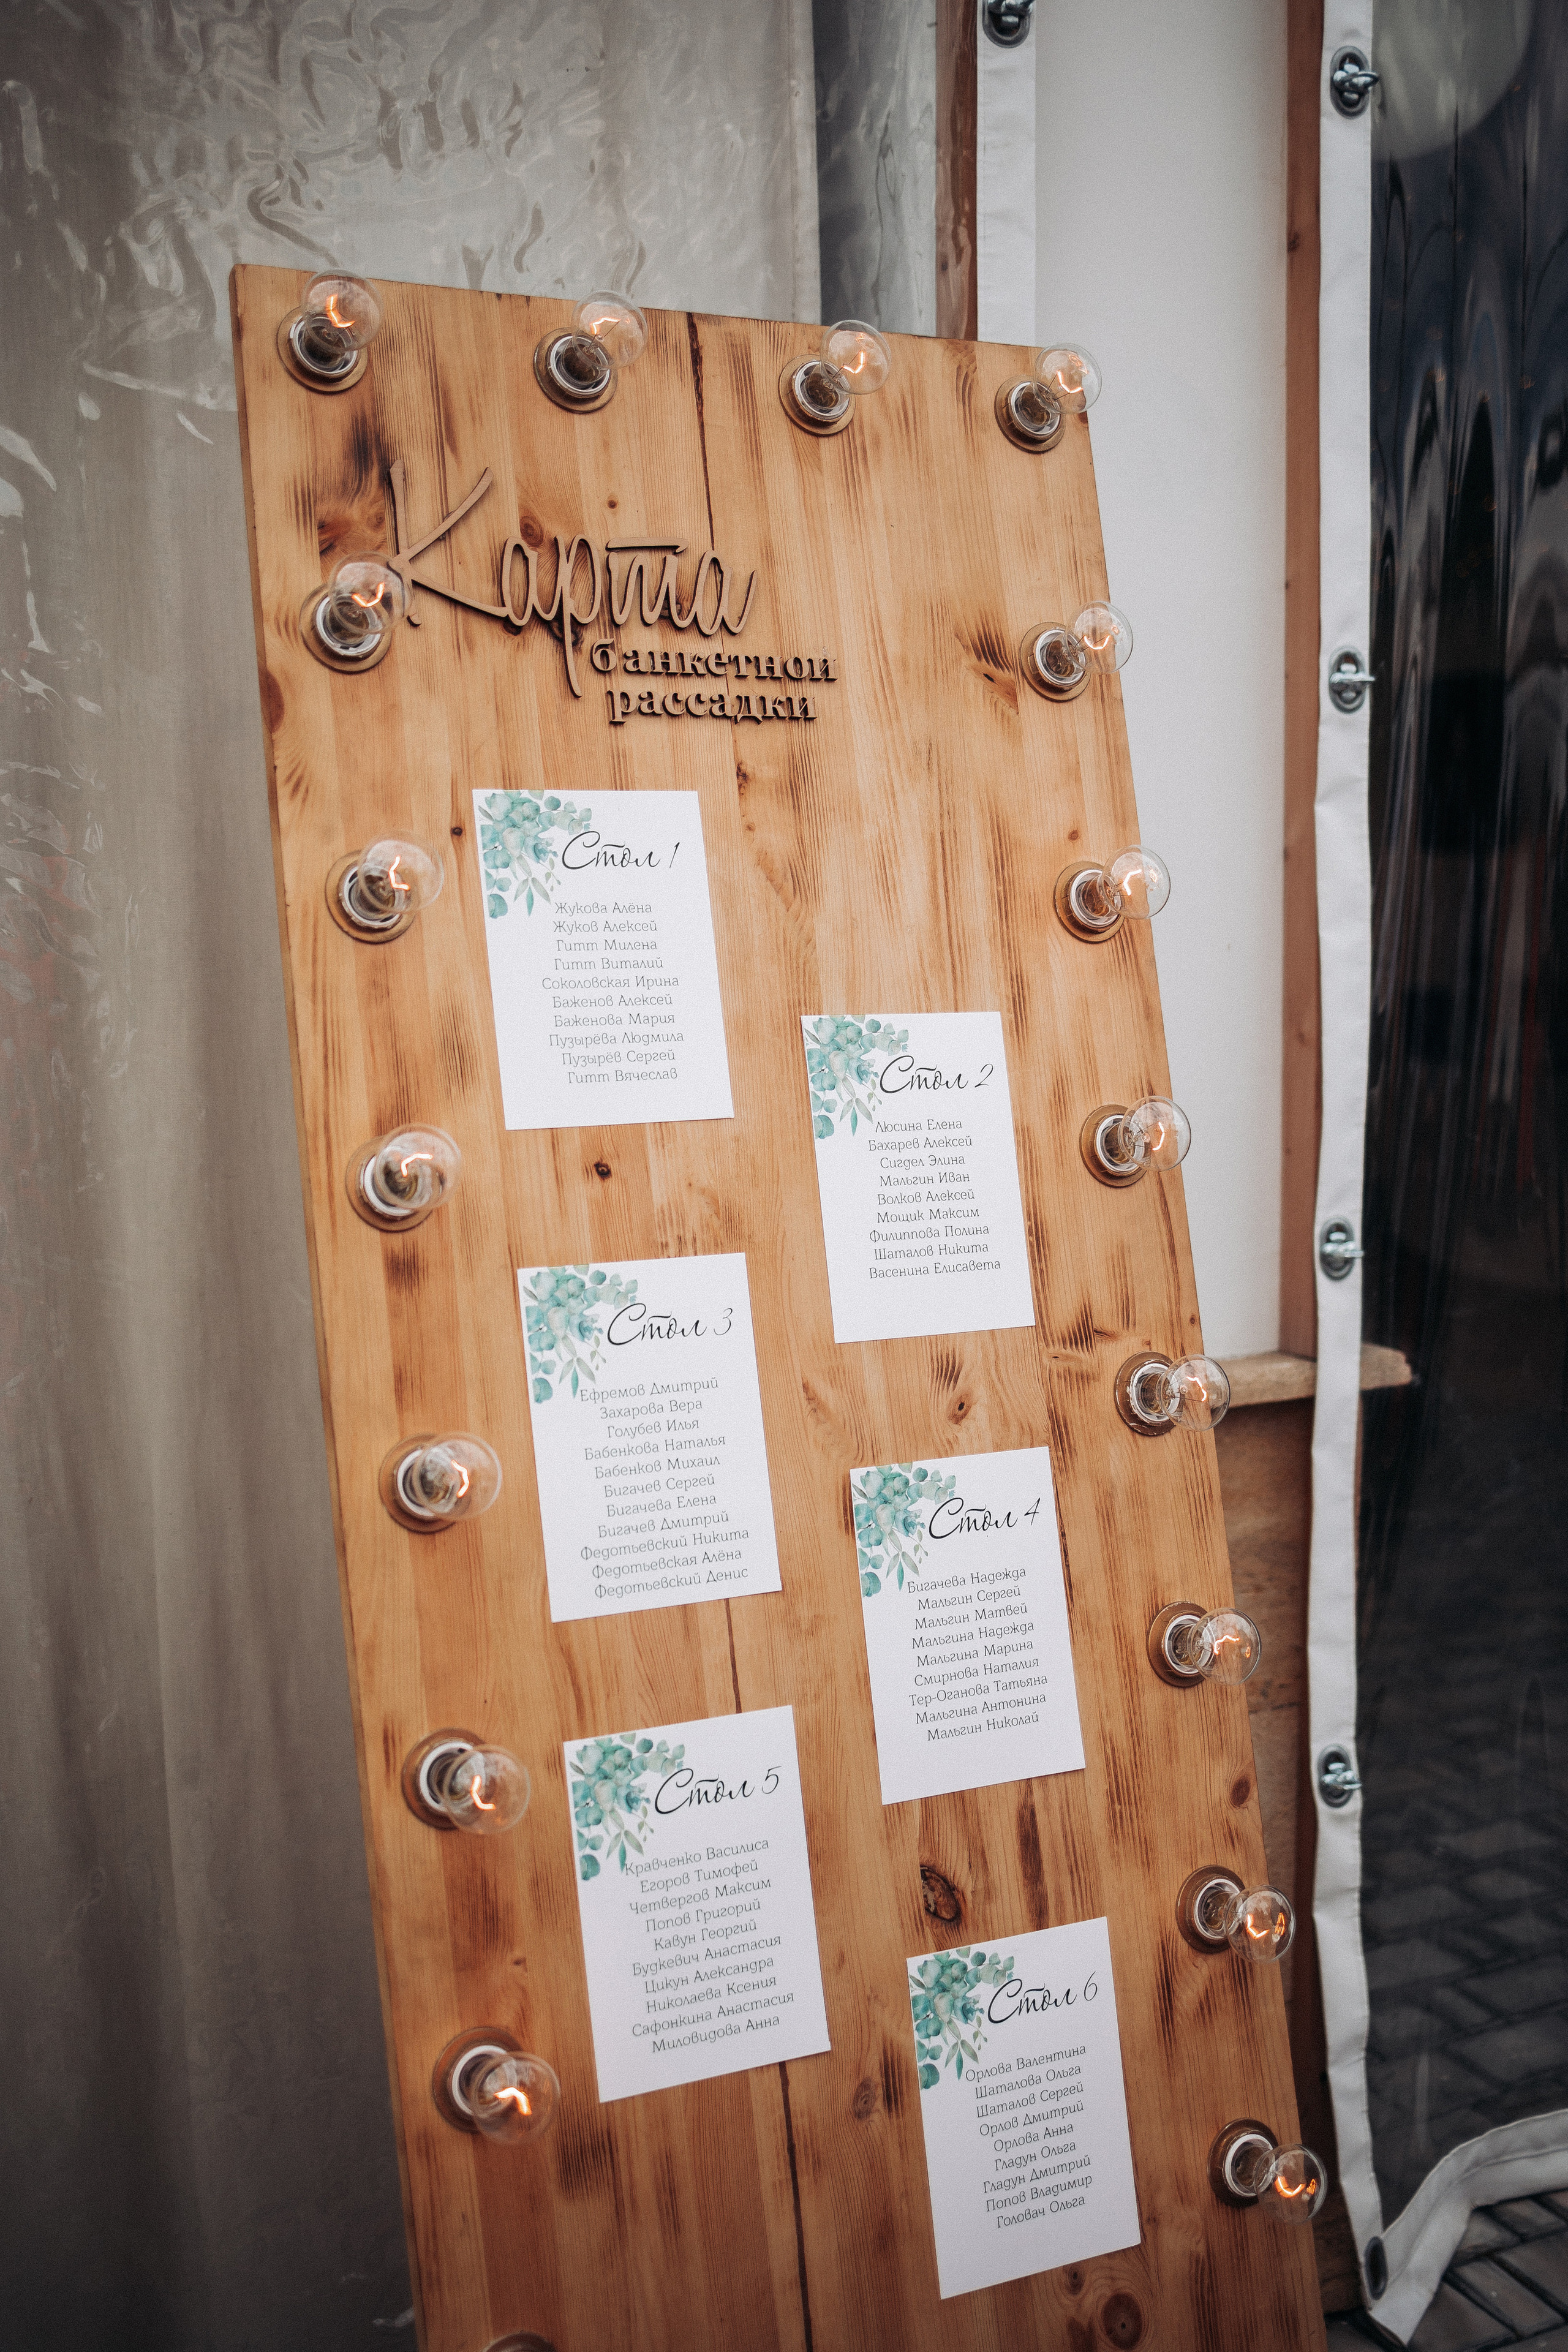 Карта
банкетной
рассадки
Стол 1
Жукова Алёна
Жуков Алексей
Гитт Милена
Гитт Виталий
Соколовская Ирина
Баженов Алексей
Баженова Мария
Пузырёва Людмила
Пузырёв Сергей
Гитт Вячеслав
Стол 2
Люсина Елена
Бахарев Алексей
Сигдел Элина
Мальгин Иван
Волков Алексей
Мощик Максим
Филиппова Полина
Шаталов Никита
Васенина Елисавета
Стол 3
Ефремов Дмитрий
Захарова Вера
Голубев Илья
Бабенкова Наталья
Бабенков Михаил
Бигачев Сергей
Бигачева Елена
Бигачев Дмитрий
Федотьевский Никита
Федотьевская Алёна
Федотьевский Денис
Стол 4
Бигачева Надежда
Мальгин Сергей
Мальгин Матвей
Мальгина Надежда
Мальгина Марина
Смирнова Наталия
Тер-Оганова Татьяна
Мальгина Антонина
Мальгин Николай
Стол 5
Кравченко Василиса
Егоров Тимофей
Четвергов Максим
Попов Григорий
Кавун Георгий
Будкевич Анастасия
Цикун Александра
Николаева Ксения
Сафонкина Анастасия
Миловидова Анна
Стол 6
Орлова Валентина
Шаталова Ольга
Шаталов Сергей
Орлов Дмитрий
Орлова Анна
Гладун Ольга
Гладун Дмитрий
Попов Владимир
Головач Ольга